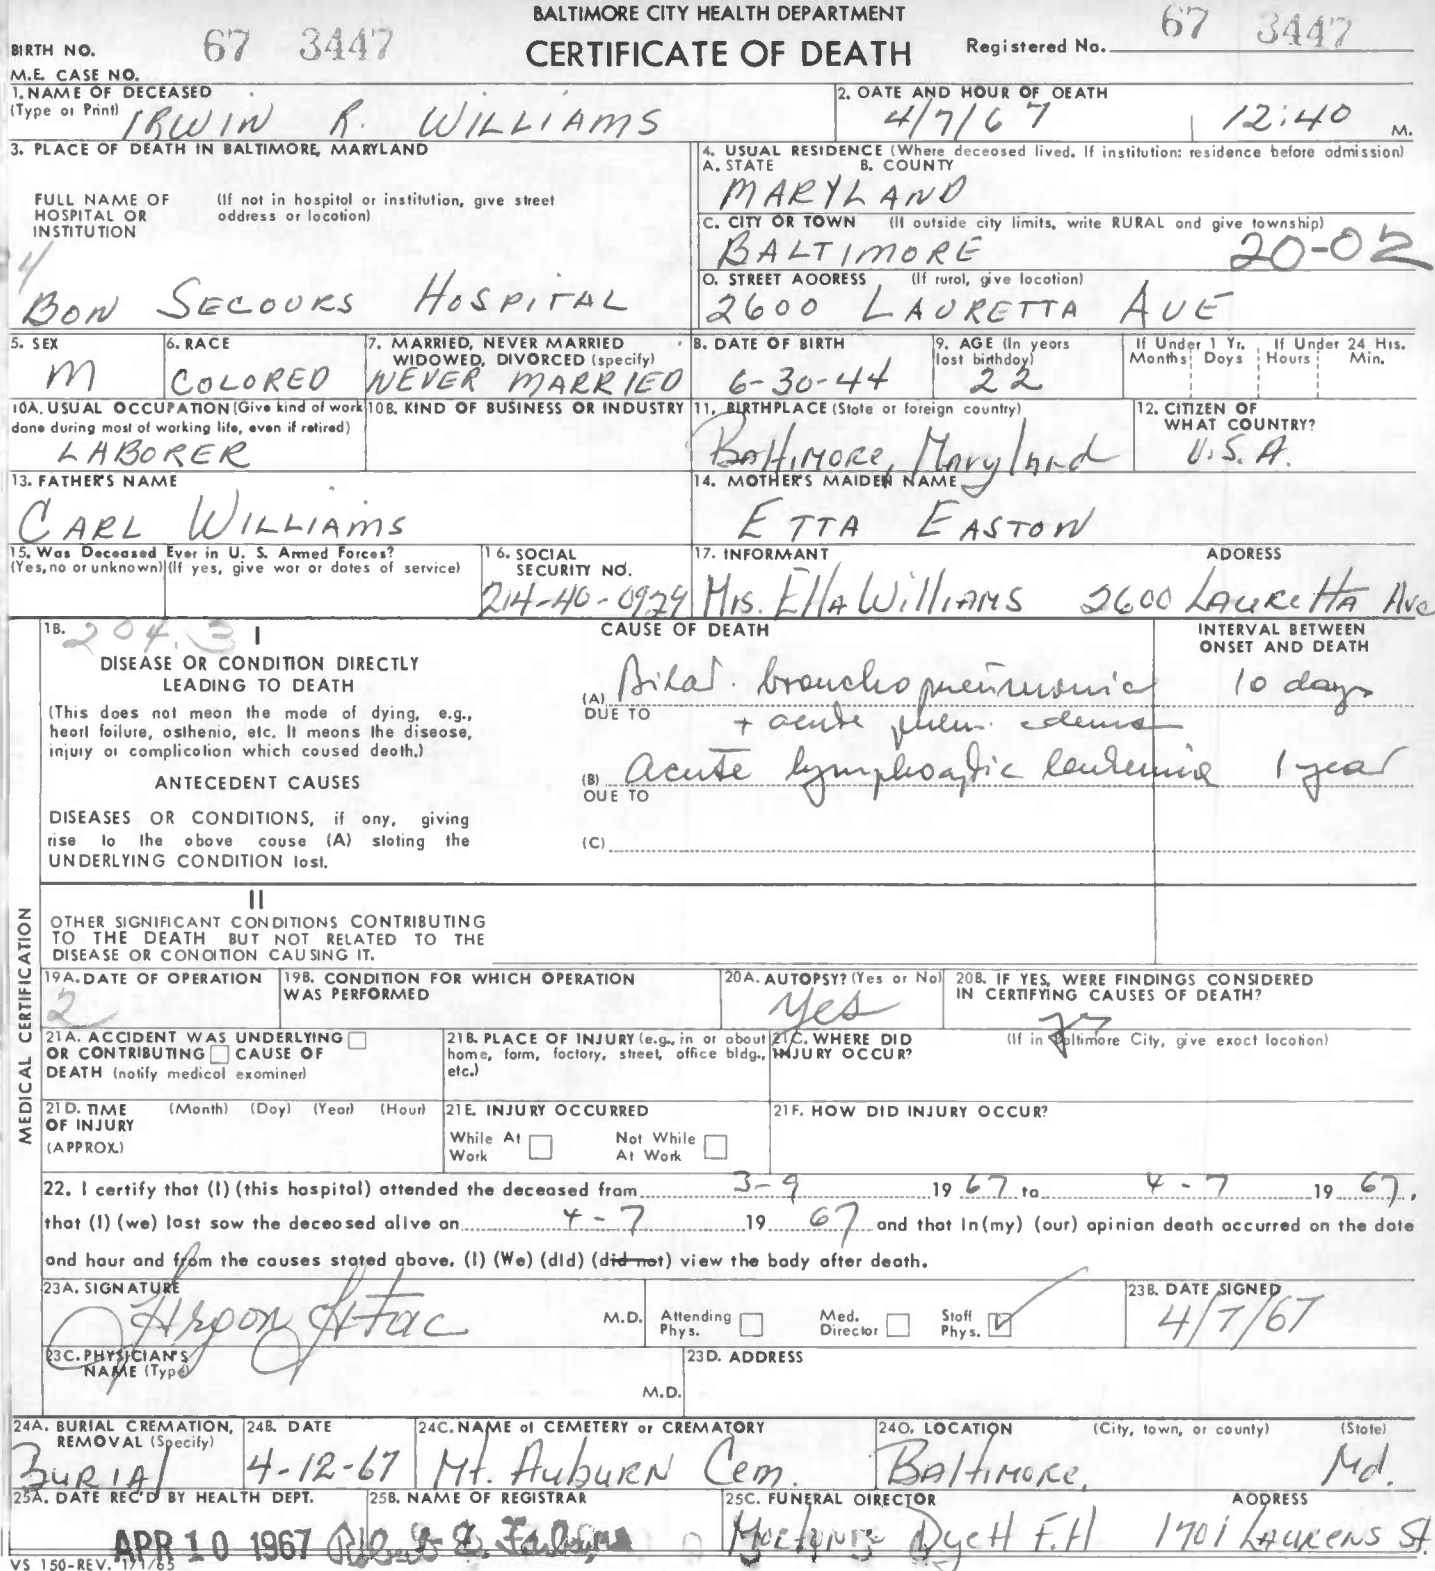 BALTIMORE CITY HEALTH DEPARTMENT
BIRTH NO. 67 3447 CERTIFICATE OF DEATH Registered No. 67 3447
M.E. CASE NO.
1. NAME OF DECEASED
(Type or Print) IRWIN R. WILLIAMS
2. DATE AND HOUR OF DEATH
4/7/67 12:40 M.
3. PLACE OF DEATH IN BALTIMORE, MARYLAND
FULL NAME OF HOSPITAL OR INSTITUTION
(If not in hospital or institution, give street address or location)
4
BON SECOURS HOSPITAL
4. USUAL RESIDENCE (Where deceased lived. If institution: residence before admission)
A. STATE B. COUNTY
MARYLAND
C. CITY OR TOWN (If outside city limits, write RURAL and give township)
BALTIMORE 20-02
D. STREET ADDRESS (If rural, give location)
2600 LAURETTA AVE
5. SEX
M
6. RACE
COLORED
7. MARRIED, NEVER MARRIED
WIDOWED, DIVORCED (specify)
NEVER MARRIED
8. DATE OF BIRTH
6-30-44
9. AGE (In years
last birthday)
22
If Under 1 Yr.
Months Days
If Under 24 Hrs.
Hours Min.
10A. USUAL OCCUPATION (Give kind of work
done during most of working life, even if retired)
LABORER
10B. KIND OF BUSINESS OR INDUSTRY
11. BIRTHPLACE (State or foreign country)
Baltimore, Maryland
12. CITIZEN OF
WHAT COUNTRY?
U.S.A.
13. FATHER'S NAME
CARL WILLIAMS
14. MOTHER'S MAIDEN NAME
ETTA EASTON
15. Was Deceased Ever in U. S. Armed Forces?
(Yes, no or unknown) (If yes, give war or dates of service)
16. SOCIAL
SECURITY NO.
214-40-0929
17. INFORMANT ADDRESS
Mrs. Ella Williams 2600 Lauretta Ave
18. 204.3 I
DISEASE OR CONDITION DIRECTLY
LEADING TO DEATH
(This does not mean the mode of dying, e.g.,
heart failure, asthenia, etc. It means the disease,
injury or complication which caused death.)
ANTECEDENT CAUSES
DISEASES OR CONDITIONS, if any, giving
rise to the above cause (A) stating the
UNDERLYING CONDITION last.
CAUSE OF DEATH
INTERVAL BETWEEN
ONSET AND DEATH
(A) Bilat. bronchopneumonia 10 days
DUE TO + acute pulm. edema
(B) acute lymphocytic leukemia 1 year
DUE TO
(C)
II
OTHER SIGNIFICANT CONDITIONS CONTRIBUTING
TO THE DEATH BUT NOT RELATED TO THE
DISEASE OR CONDITION CAUSING IT.
MEDICAL CERTIFICATION
19A. DATE OF OPERATION
2
19B. CONDITION FOR WHICH OPERATION
WAS PERFORMED
20A. AUTOPSY? (Yes or No)
Yes
20B. IF YES, WERE FINDINGS CONSIDERED
IN CERTIFYING CAUSES OF DEATH?
21A. ACCIDENT WAS UNDERLYING
OR CONTRIBUTING CAUSE OF
DEATH (notify medical examiner)
21B. PLACE OF INJURY (e.g., in or about
home, farm, factory, street, office bldg.,
etc.)
21C. WHERE DID
INJURY OCCUR?
(If in Baltimore City, give exact location)
21D. TIME
OF INJURY
(APPROX.)
(Month) (Day) (Year) (Hour)
21E. INJURY OCCURRED
While At Work
Not While At Work
21F. HOW DID INJURY OCCUR?
22. I certify that (I) (this hospital) attended the deceased from 3-9 1967 to 4-7 1967,
that (I) (we) last saw the deceased alive on 4-7 1967 and that in (my) (our) opinion death occurred on the date
and hour and from the causes stated above. (I) (We) (did) (did not) view the body after death.
23A. SIGNATURE
M.D.
Attending Phys.
Med. Director
Staff Phys.
23B. DATE SIGNED
4/7/67
23C. PHYSICIAN'S
NAME (Type)
M.D.
23D. ADDRESS
24A. BURIAL CREMATION,
REMOVAL (Specify)
Burial
24B. DATE
4-12-67
24C. NAME of CEMETERY or CREMATORY
Mt. Auburn Cem.
24D. LOCATION (City, town, or county) (State)
Baltimore, Md.
25A. DATE REC'D BY HEALTH DEPT.
APR 10 1967
25B. NAME OF REGISTRAR
25C. FUNERAL DIRECTOR ADDRESS
Dyett F.H 1701 Laurens St.
VS 150-REV. 1/1/65